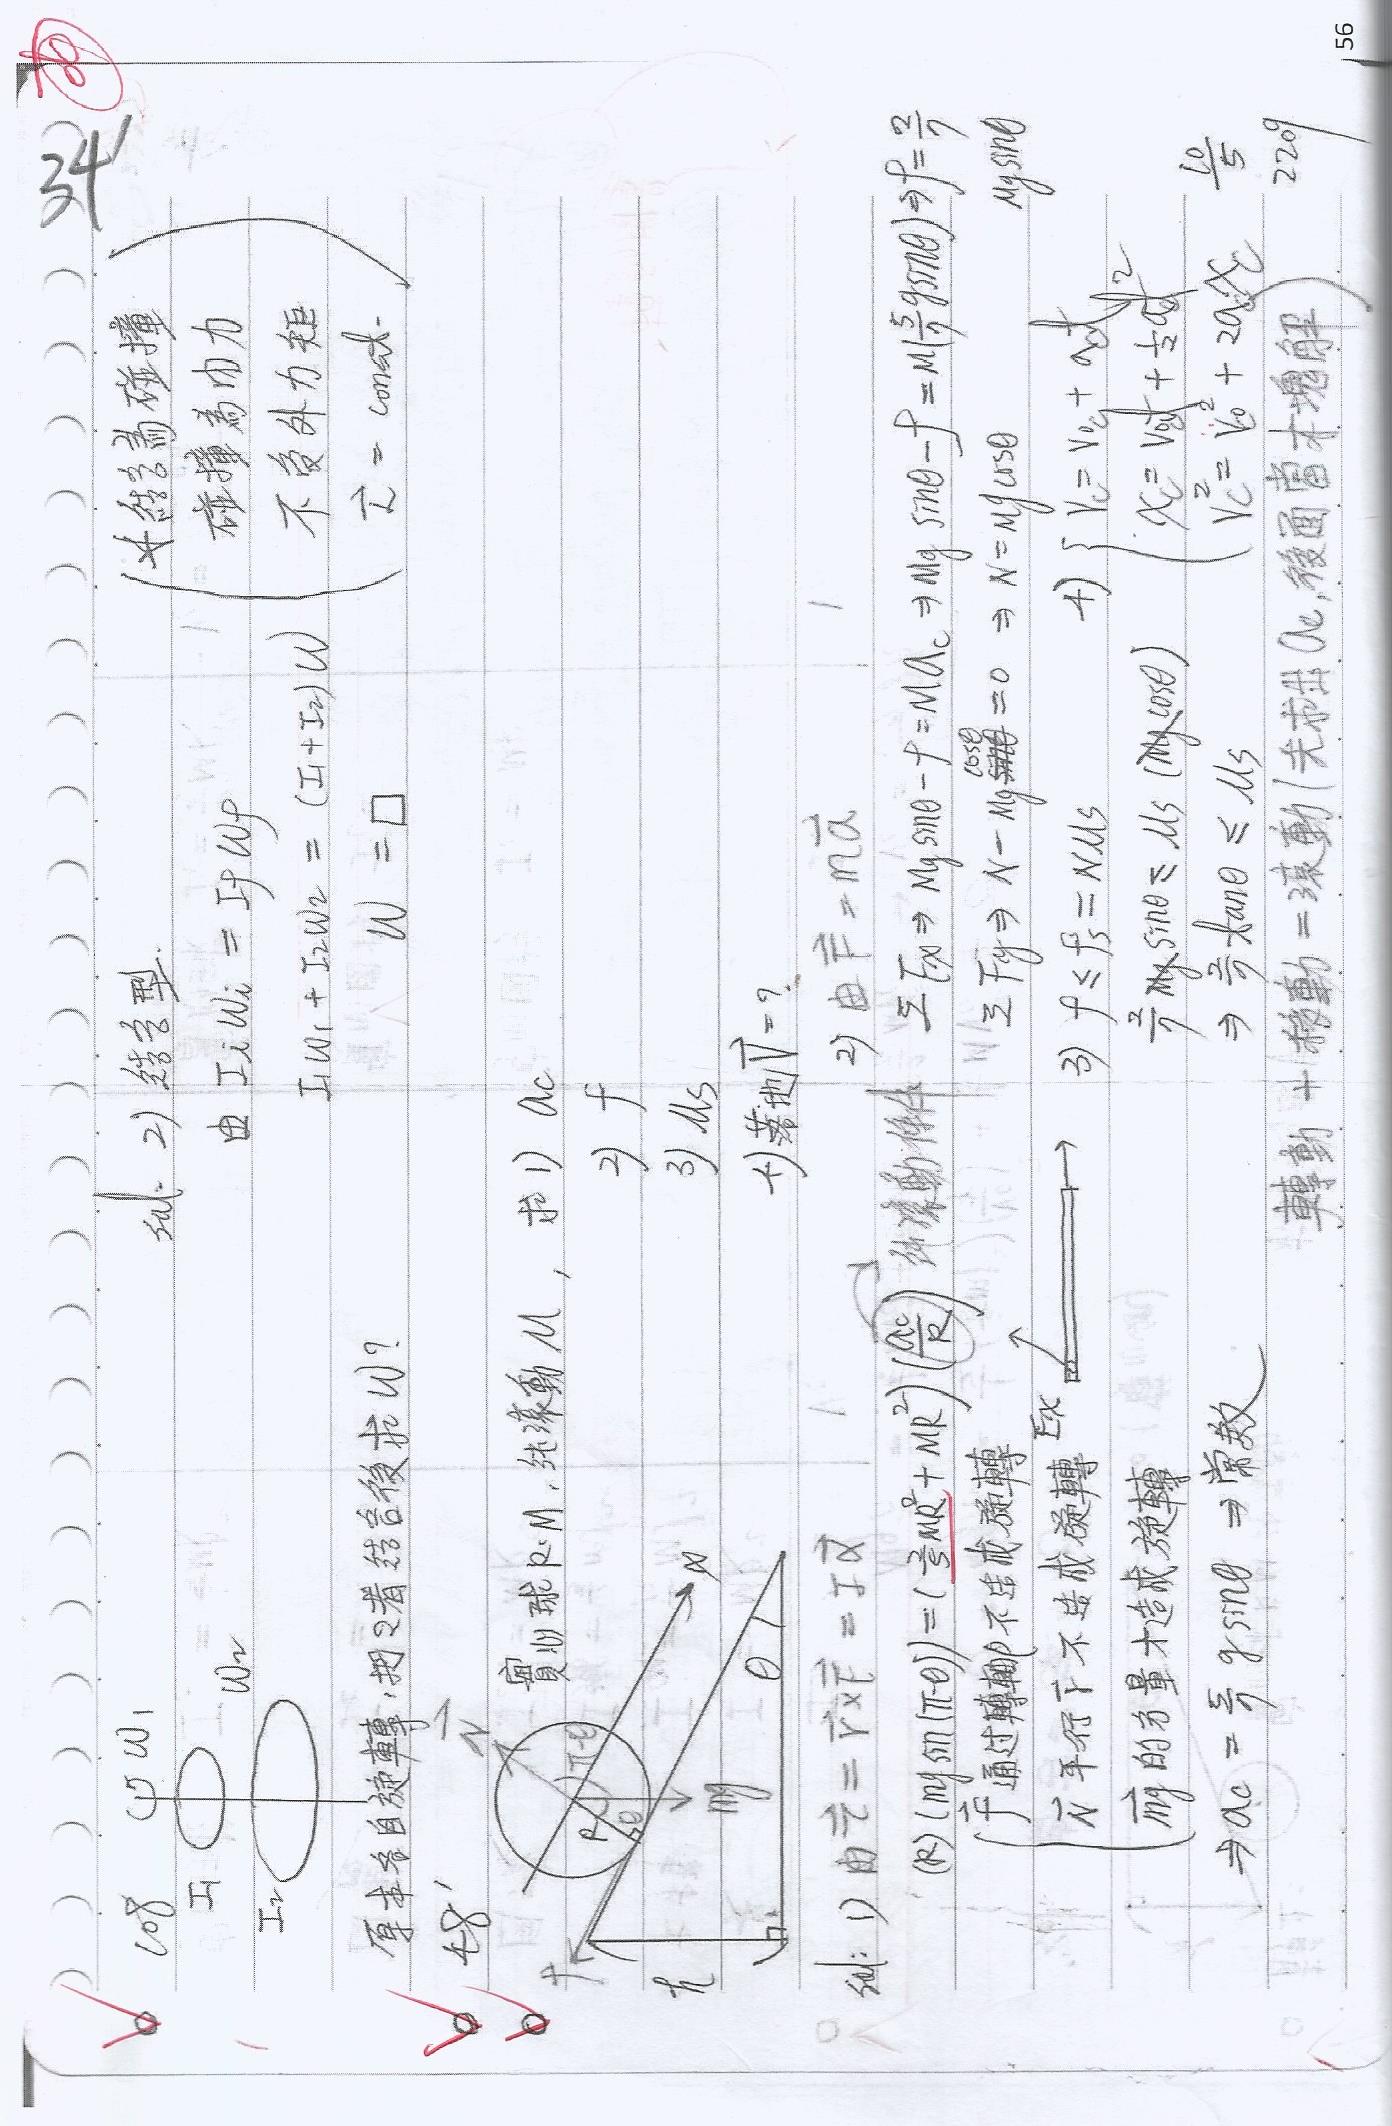 34'
80
108
ω1
I1
I2
ω2
原本各自旋轉,把2者結合後求ω?
sol: 2) 結合型
由 IiWi = IfWf
I1W1 + I2W2 = (I1+I2)W
W = □
(*結合為碰撞
碰撞為內力
不受外力矩
L = const.)
48'
實心球R.M.純滾動M, 求 1) ac
2) f
3) Ms
4) 落地V=?
N
f
h
R
θ
π-θ
mg
x
θ
sol: 1) 由 τ = r×F = Iα
(R)(mg sin(π-θ)) = (2/5 MR² + MR²)(ac/R) 純滾動條件
f 通过轉軸P不造成旋轉
N 平行r 不造成旋轉
mg的分量才造成旋轉
Ex
⇒ ac = 5/7 g sinθ ⇒ 常数
2) 由 F = ma
ΣFx ⇒ Mg sinθ - f = Mac ⇒ Mg sinθ - f = M(5/7 g sinθ) ⇒ f = 2/7 Mg sinθ
ΣFy ⇒ N - Mg cosθ = 0 ⇒ N = Mg cosθ
3) f ≤ fs = NMs
2/7 Mg sinθ ≤ Ms (Mg cosθ)
⇒ 2/7 tanθ ≤ Ms
4) { Vc = V0 + act
xc = V0t + 1/2 act²
Vc² = V0² + 2acxc
轉動 + 移動 = 滾動 (先求出ac, 後面當木塊解)
10/5
2209
56